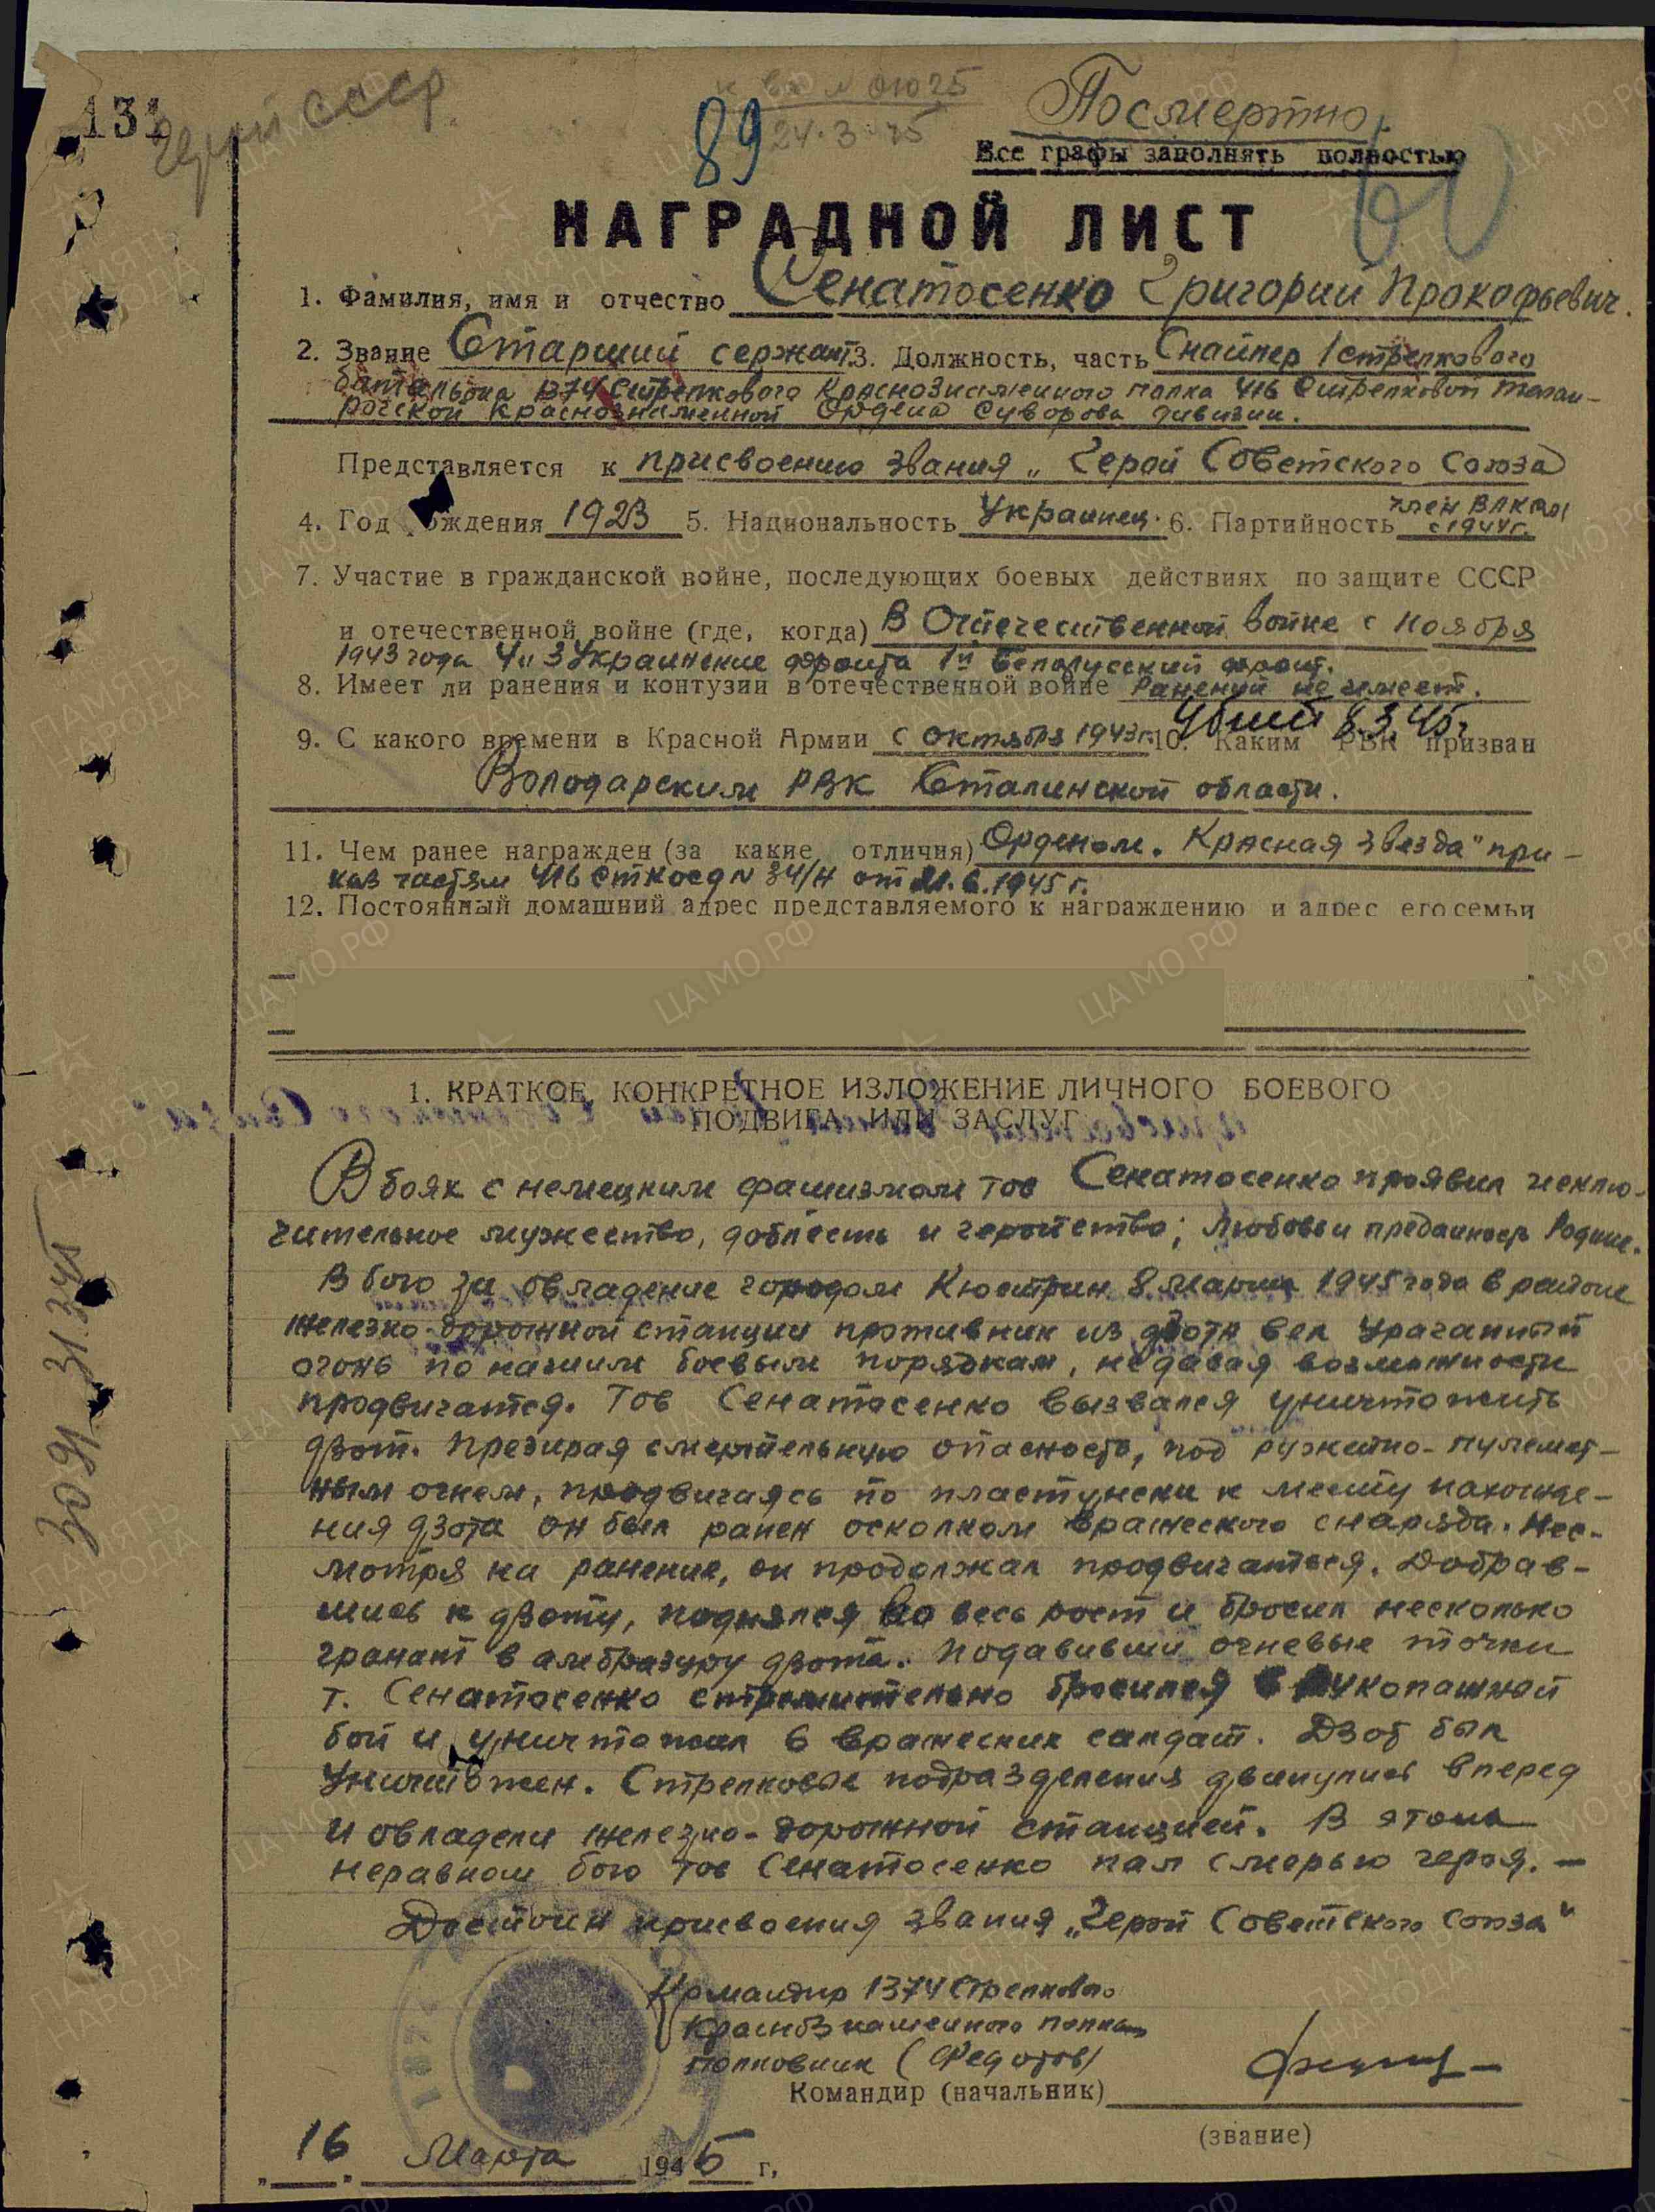 131
Герой СССР
89
24.3.45
Посмертно.
Все графы заполнять полностью
60
НАГРАДНОЙ ЛИСТ
1. Фамилия, имя и отчество Сенатосенко Григорий Прокофьевич.
2. Звание Старший сержант 3. Должность, часть Снайпер 1 стрелкового
батальона 1374 стрелкового Краснознаменного полка 416 стрелковой Таган-
рогской краснознаменной Ордена Суворова дивизии.
Представляется к присвоению звания „Герой Советского Союза
4. Год рождения 1923 5. Национальность Украинец. 6. Партийность член ВЛКСМ
с 1944 г.
7. Участие в гражданской войне, последующих боевых действиях по защите СССР
и отечественной войне (где, когда) В Отечественной войне с ноября
1943 года 4 и 3 Украинские фронта 1й Белорусский фронт.
8. Имеет ли ранения и контузии в отечественной войне Ранений не имеет.
Убит 8.3.45г
9. С какого времени в Красной Армии с октября 1943 г. 10. Каким РВК призван
Володарским РВК Сталинской области.
11. Чем ранее награжден (за какие отличия) Орденом „Красная звезда" при-
каз частям 416 сткосд N 34/н от 21.2.1945 г.
12. Постоянный домашний адрес представляемого к награждению и адрес его семьи
1. КРАТКОЕ, КОНКРЕТНОЕ ИЗЛОЖЕНИЕ ЛИЧНОГО БОЕВОГО
ПОДВИГА ИЛИ ЗАСЛУГ
В боях с немецким фашизмом тов Сенатосенко проявил исклю-
чительное мужество, доблесть и геройство; любовь и преданность Родине.
В бою за овладение городом Кюстрин 8 марта 1945 года в районе
железно-дорожной станции противник из дзота вел ураганный
огонь по нашим боевым порядкам, не давая возможности
продвигатся. Тов Сенатосенко вызвался уничтожить
дзот. Презирая смертельную опасность, под ружейно-пулемет-
ным огнем, продвигаясь по пластунски к месту нахожде-
ния дзота он был ранен осколком вражеского снаряда. Нес-
мотря на ранение, он продолжал продвигаться. Добрав-
шись к дзоту, поднялся во весь рост и бросил несколько
гранат в амбразуру дзота. Подавивши огневые точки
т. Сенатосенко стремительно бросился в рукопашный
бой и уничтожил 6 вражеских салдат. Дзот был
Уничтожен. Стрелковые подразделения двинулись вперед
и овладели железно-дорожной станцией. В этом
неравном бою тов Сенатосенко пал смерью героя. —
Достоин присвоения звания „Герой Советского Союза"
Командир 1374 Стрелкового
Краснознаменного полка
полковник (Федотов)
Командир (начальник)
(звание)
„16" Марта 1945 г.
3091 31.3.45
ПАМЯТЬ НАРОДА
ЦА МО РФ